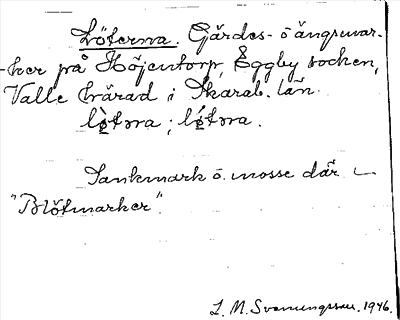 Löterna. Gärdes- o ängsmar-
-ker på Höjentorp, Eggby socken,
Valle härad i Skarab. län.
lø̀təra ; lǿtəra.
Sankmark o. mosse där
"Blötmarker".
L. M. Svenungsson. 1946.